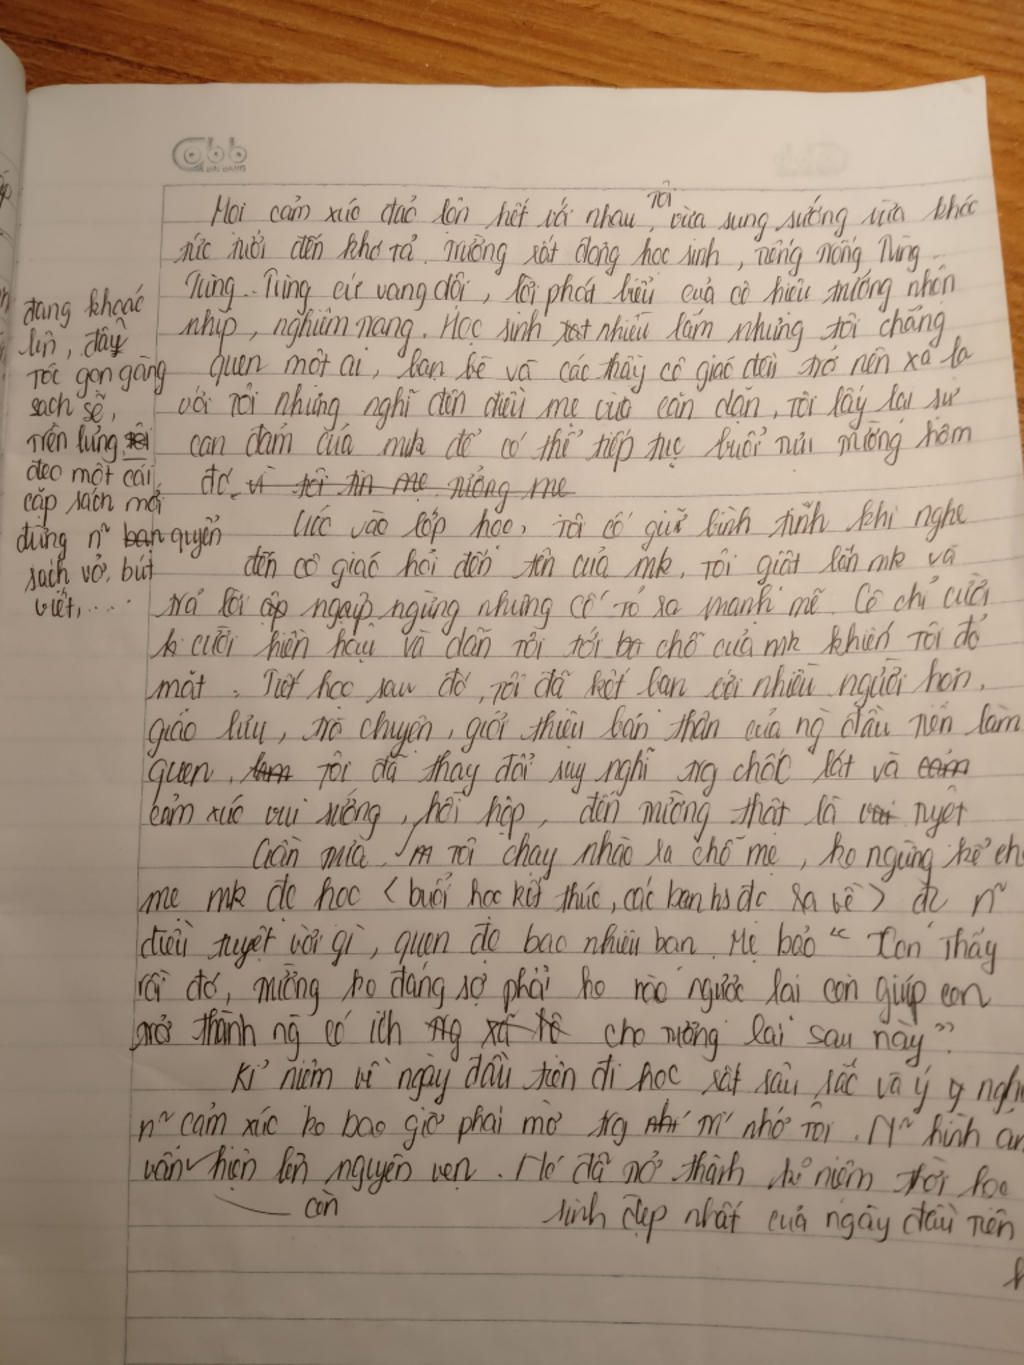 Mọi cảm xúc đảo lộn hết với nhau, Tôi vừa sung sướng vừa khóc
nức nưởi đến khó tả. Trường rất đông học sinh, tiếng trống Tùng..
Tùng.. Tùng cứ vang dội, lời phát biểu của cô hiệu trưởng nhộn
nhịp, nghiêm nang. Học sinh rất nhiều lắm nhưng tôi chẳng
quen một ai, bạn bè và các thầy cô giáo đều trở nên xa lạ
với Tôi nhưng nghĩ đến điều mẹ vừa căn dặn, Tôi lấy lại sự
can đảm của mk để có thể tiếp tục buổi tựu trường hôm
đó. vì tôi tin mẹ
đang khoác
lên, đầu
Tóc gọn gàng
sạch sẽ,
Trên lưng tôi
đeo một cái
cặp sách mới
đựng n~ bạn quyển
sách vở, bút
viết,....
Lúc vào lớp học, Tôi cố giữ bình tĩnh khi nghe
đến cô giáo hỏi đến tên của mk, Tôi giật bắn mk và
trả lời ấp ngạp ngừng nhưng cố tỏ ra mạnh mẽ. Cô chỉ cười
k cười hiền hậu và dẫn Tôi tới chỗ của mk khiến Tôi đỏ
mặt. Tiết học sau đó, Tôi đã kết bạn với nhiều người hơn,
giao lưu, trò chuyện, giới thiệu bản thân của ng đầu tiên làm
quen. Tôi đã thay đổi suy nghĩ trg chốc lát và cảm
cảm xúc vui sướng, hồi hộp, đến trường thật là vui tuyệt
Tôi chạy nhào ra chỗ mẹ, ko ngừng kể ch
mẹ mk đc học (buổi học kết thúc, các bạn hs đc ra về) đc n~
điều tuyệt vời gì, quen đc bao nhiêu bạn. Mẹ bảo "Con Thấy
rồi đó, trường ko đáng sợ phải ko nào ngược lại còn giúp con
trở thành ng có ích cho tương lai sau này".
Kỉ niệm về ngày đầu tiên đi học rất sâu sắc và ý nghĩ
n~ cảm xúc ko bao giờ phai mờ trg trí nhớ tôi. N~ hình ản
vẫn còn hiện lên nguyên vẹn. Nó đã trở thành kỉ niệm thời học
sinh đẹp nhất của ngày đầu tiên